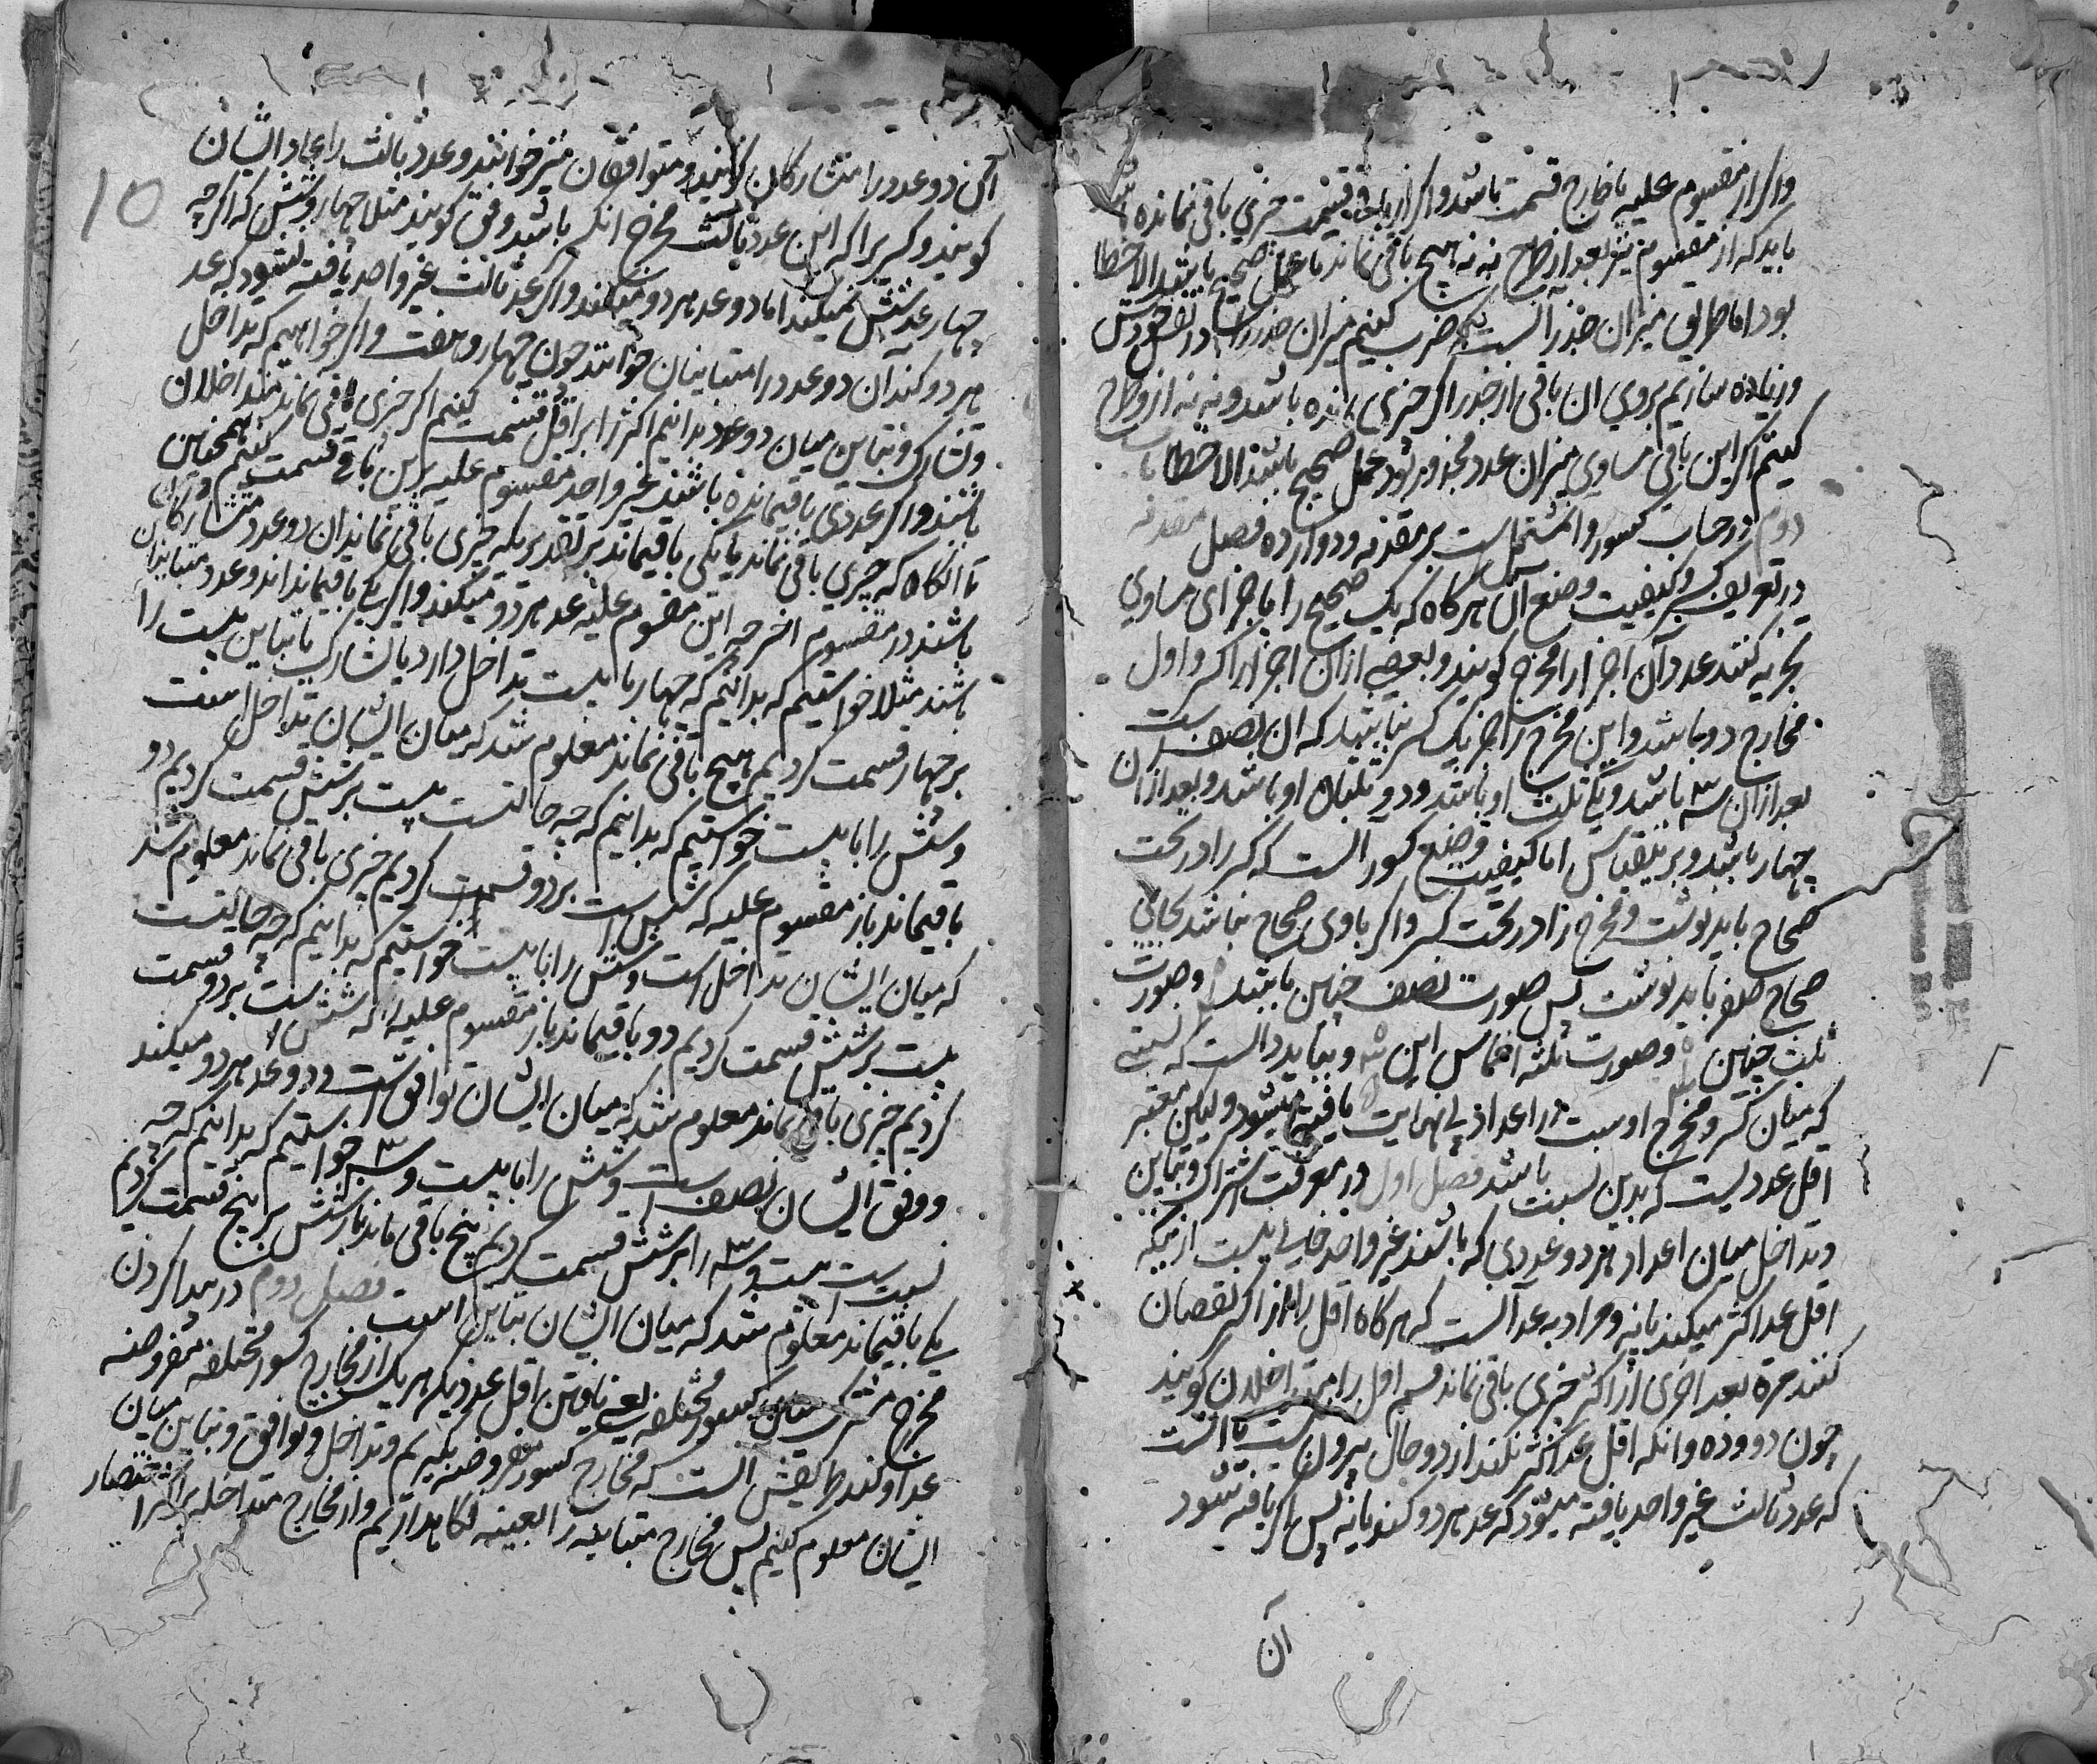 واگر از مقسوم علیه یا خارج قسمت باشد و اگر از باقی قسمت چیزی باقی نمانده باشد
باید که از مقسوم نیز بعد از طرح نه نه هیچ باقی نماند تا عمل صحیح باشد والا خطا
بود اما طریق میزان جذر آنست که ضرب کنیم میزان جذر را در نفس خودش
و زیاده سازیم بروی ان باقی از جذر اگر چیزی مانده باشد و نه نه از و طرح
کنیم اگر این باقی مساوی میزان عدد مجذور شود عمل صحیح باشد والا خطا باب
دوم در حساب کسور و آن مشتمل است بر مقدمه و دوازده فصل مقدمه
در تعریف کسر و کیفیت وضع آن هرگاه که یک صحیح را باجزای مساوی
تجزیه کنند عدد آن اجزا را مخرج گویند و بعضی از ان اجزا را کسر و اول
مخارج دو باشد و این مخرج را جز یک کسر نباشد که ان نصف است
بعد از ان سه باشد و یکی ثلث او باشد و دو ثلثان او باشد و بعد از ان
چهار باشد و برینقیاس اما کیفیت وضع کسور آنست که کسر را در تحت
صحاح باید نوشت و مخرج را در تحت کسر و اگر با وی صحاح نباشد بجای
صحاح صفر باید نوشت پس صورت نصف چنین باشد و صورت
ثلث چنین و صورت ثلثه اخماس این و بباید دانست که نسبتی
که میان کسر و مخرج اوست در اعداد بی نهایت یافته میشود ولیکن معتبر
اقل عددیست که بدین نسبت باشد فصل اول در معرفت اشتراک و تباین
و تداخل میان اعداد هر دو عددی که باشند غیر واحد خالی نیست ازینکه
اقل عد اکثر میکند یا نه و مراد به عد آنست که هرگاه اقل را از اکثر نقصان
کنند مرة بعد اخری از اکثر چیزی باقی نماند قسم اول را متداخلان گویند
چون دو و ده و انکه اقل عد اکثر نکند از دو حال بیرون نیست یا آنست
که عدد ثالث غیر واحد یافته میشود که عد هر دو کند یا نه پس اگر یافته شود
آن
10
آن دو عدد را متشارکان گویند و متوافقان نیز خوانند و عدد ثالث را عاد ایشان
گویند و کسریرا که این عدد ثالث مخرج انکسر باشد وفق گویند مثلا چهار و شش که اگرچه
چهار عد شش نمیکند اما دو عد هر دو میکند و اگر عدد ثالث غیر واحد یافته نشود که عد
هر دو کند آن دو عدد را متباینان خوانند چون چهار و هفت و اگر خواهیم که تداخل
و تشارک و تباین میان دو عدد بدانیم اکثر را بر اقل قسمت کنیم اگر چیزی باقی نماند متداخلان
باشند و اگر عددی باقیمانده باشد غیر واحد مقسوم علیه را برین باقی قسمت کنیم و همچنین
تا آنگاه که چیزی باقی نماند یا یکی باقیماند بر تقدیریکه چیزی باقی نماند ان دو عدد متشارکان
باشند و مقسوم اخر چه این مقسوم علیه عد هر دو میکند و اگر یکی باقیماند ان دو عدد متباینان
باشند مثلا خواستیم که بدانیم که چهار با بیست تداخل دارد یا تشارک یا تباین بیست را
بر چهار قسمت کردیم هیچ باقی نماند معلوم شد که میان ایشان تداخل است
و شش را با بیست خواستیم که بدانیم که چه حالتست بیست بر شش قسمت کردیم دو
باقیماند باز مقسوم علیه که شش است بر دو قسمت کردیم چیزی باقی نماند معلوم شد
که میان ایشان تداخل است و شش را با بیست خواستیم که بدانیم که چه حالتست
بیست بر شش قسمت کردیم دو باقیماند باز مقسوم علیه را که شش است بر دو قسمت
کردیم چیزی باقی نماند معلوم شد که میان ایشان توافق است و دو عد هر دو میکند
و وفق ایشان نصف است و شش را با بیست و سه خواستیم که بدانیم که چه
نسبت است بیست و سه را بر شش قسمت کردیم پنج باقی ماند باز شش بر پنج قسمت کردیم
یکی باقیماند معلوم شد که میان ایشان تباین است فصل دوم در پیدا کردن
مخرج مشترک میان کسور مختلفه یعنی یافتن اقل عددیکه هر یک از مخارج کسور مختلفه مفروضه
عد او کند طریقش آنست که مخارج کسور مفروضه بگیریم و تداخل و توافق و تباین میان
ایشان معلوم کنیم پس مخارج متباینه را بعینه نگاه داریم و از مخارج متداخله بر اکثر اختصار